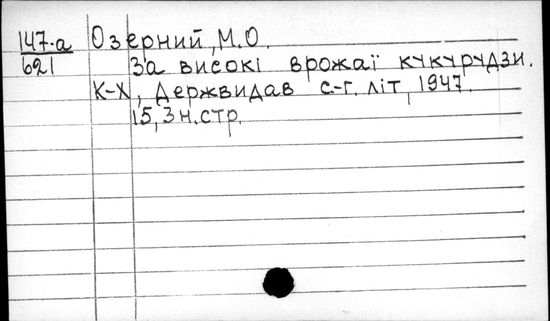 147-а Озерний, М.О.
621 За високі врожаї кукурудзи.
К-Х, Держвидав с.-г. літ, 1947.
15, 3 н. стр.